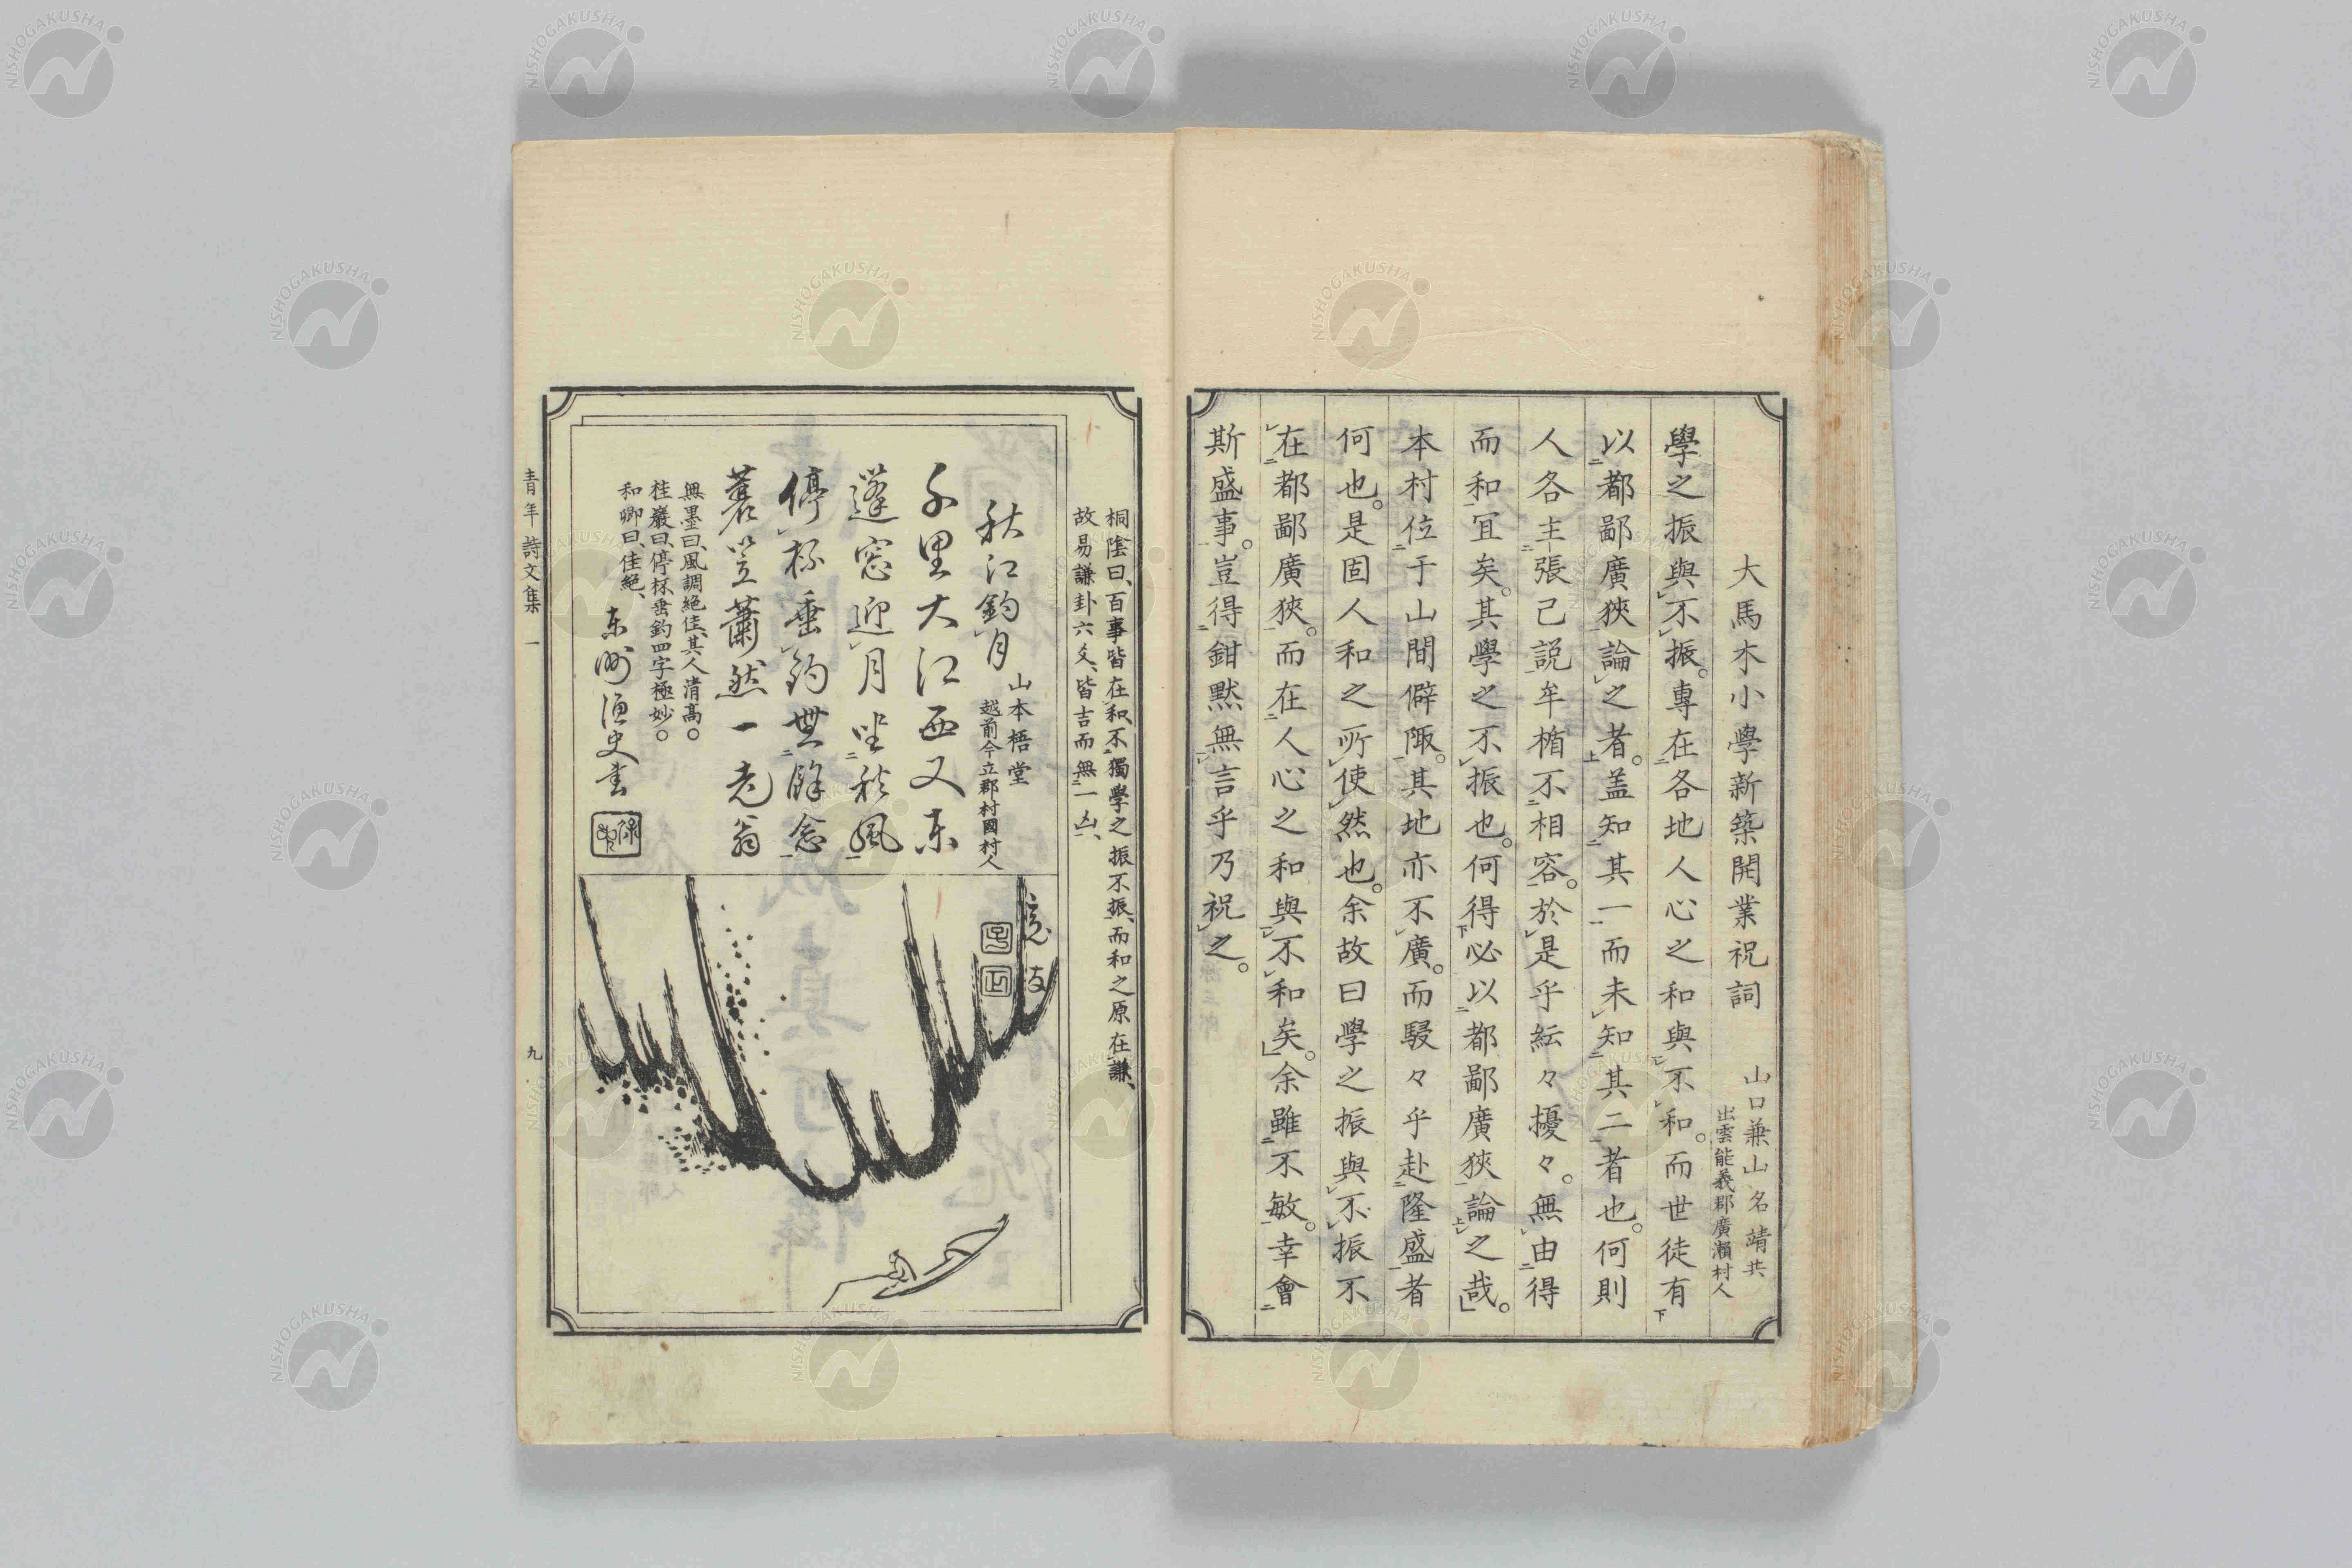 大馬木小學新築開業祝詞
山口兼山 名靖共
出雲能義郡廣瀨村人
學之振與不振。專在各地人心之和與不和。而世徒有
以都鄙廣狹論之者。盖知其一而未知其二者也。何則
人各主張己說牟楯不相容。於是乎紜々擾々。無由得
而和宜矣。其學之不振也。何得必以都鄙廣狹論之哉。
本村位于山間僻陬。其地亦不廣。而駸々乎赴隆盛者
何也。是固人和之所使然也。余故曰學之振與不振不
在都鄙廣狹。而在人心之和與不和矣。余雖不敏。幸會
斯盛事。豈得鉗默無言乎乃祝之。
桐陰曰、百事皆在和、不獨學之振不振、而和之原在謙、
故易謙卦六爻、皆吉而無一凶、
秋江釣月
山本梧堂
越前今立郡村國村人
千里大江西又東
蓬窓迎月坐秋風
停杯垂釣無餘念
蓑笠蕭然一老翁
無墨曰、風調絕佳、其人清高。
桂巖曰、停杯垂釣四字極妙。
和卿曰、佳絕、
東洲漁史書
青年詩文集 一
九
NISHOGAKUSHA